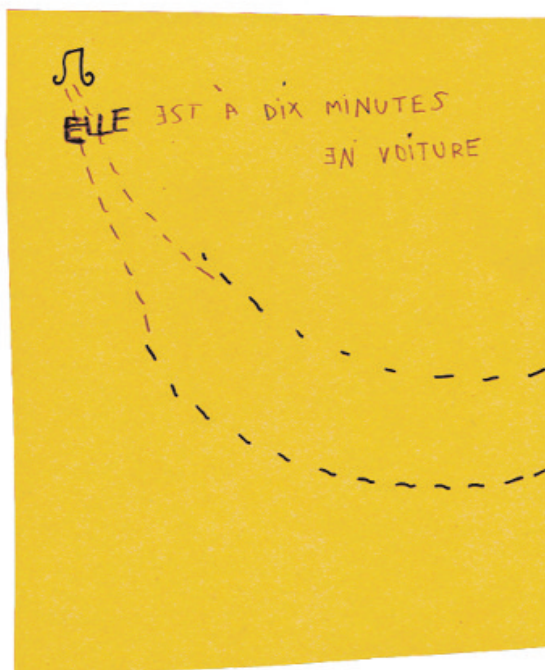 ELLE EST À DIX MINUTES
EN VOITURE